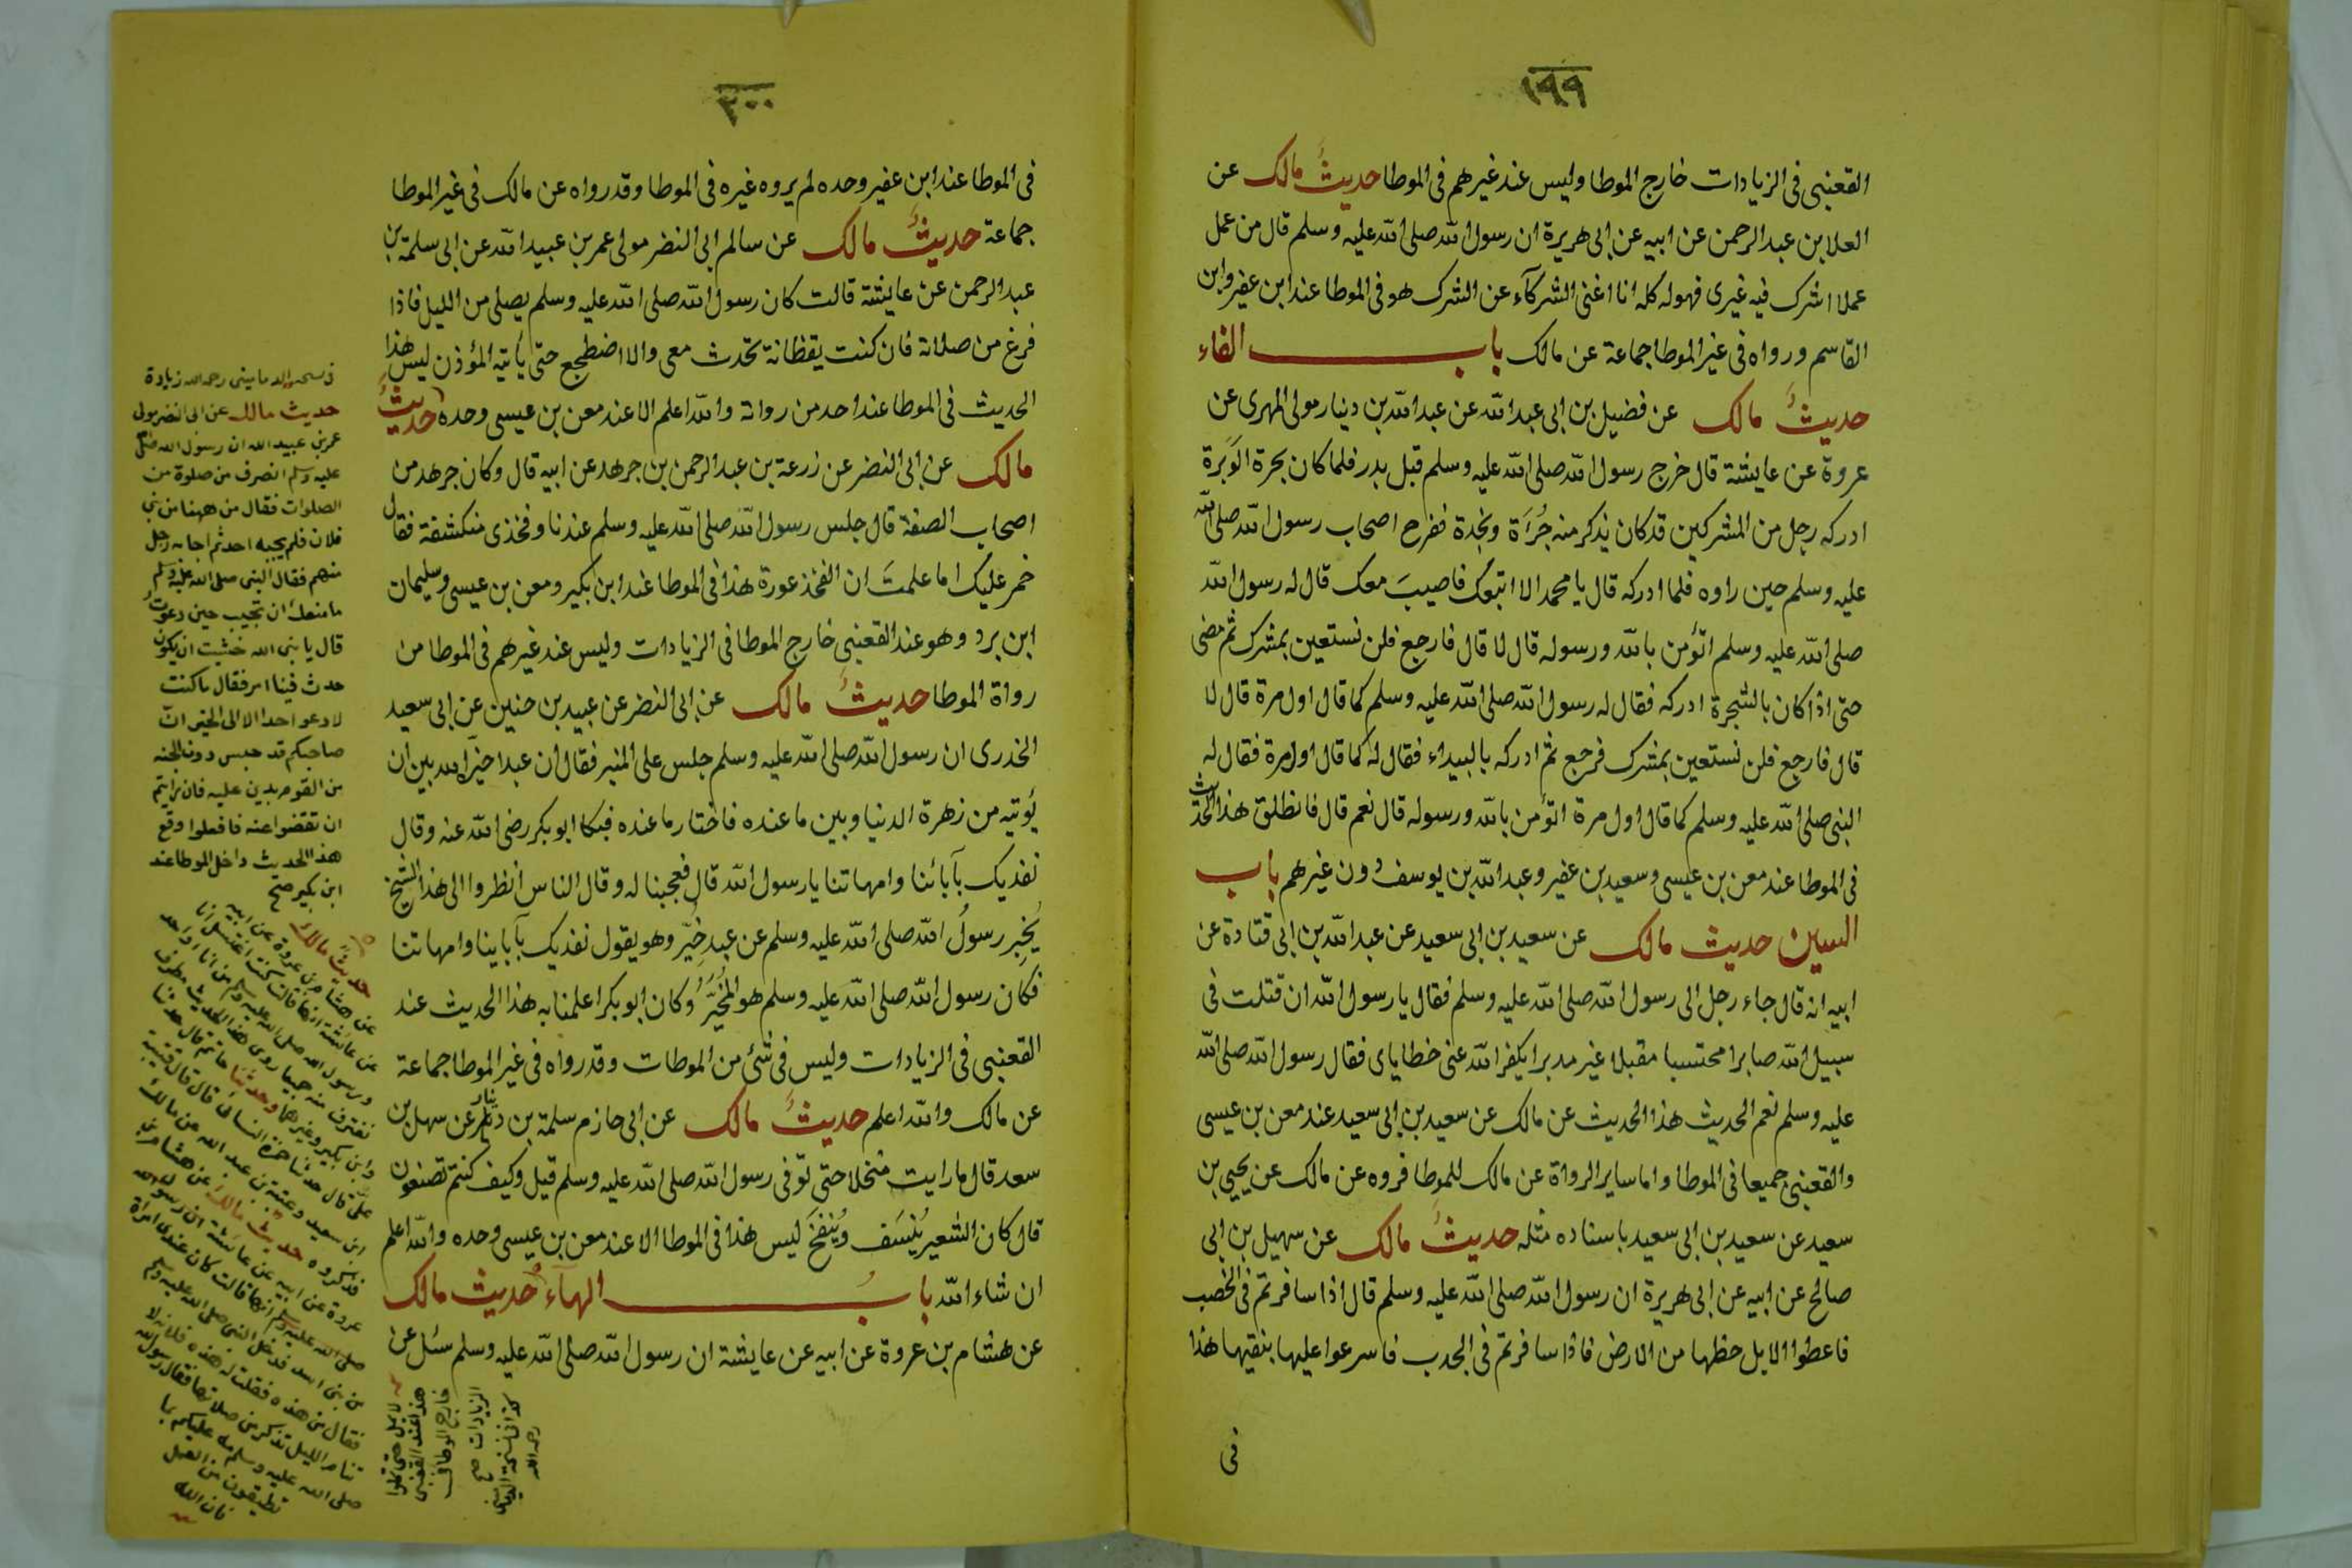 ١٩٩
القعنبى فى الزيادات خارج الموطا وليس عند غيرهم فى الموطا حديثُ مالك عن
العلا بن عبد الرحمن عن ابيه عن ابى هريرة ان رسول الله صلى الله عليه وسلم قال من عمل
عملا اشرك فيه غيرى فهو له كله انا اغنى الشركآء عن الشرك هو فى الموطا عند ابن عفير وابن
القاسم ورواه فى غير الموطا جماعة عن مالك باب الفاء
حديثُ مالك عن فضيل بن ابى عبد الله عن عبد الله بن دينار مولى المهرى عن
عروة عن عايشة قال خرج رسول الله صلى الله عليه وسلم قبل بدر فلما كان بحرة الوَبَرة
ادركه رجل من المشركين قد كان يذكر منه جُرأة ونجدة ففرح اصحاب رسول الله صلى الله
عليه وسلم حين راوه فلما ادركه قال يا محمد الا اتبعك فاصيبَ معك قال له رسول الله
صلى الله عليه وسلم اتؤمن بالله ورسوله قال لا قال فارجع فلن نستعين بمشرك ثم مضى
حتى اذا كان بالشجرة ادركه فقال له رسول الله صلى الله عليه وسلم كما قال اول مرة قال لا
قال فارجع فلن نستعين بمشرك فرجع ثم ادركه بالبيداء فقال له كما قال اول مرة فقال له
النبى صلى الله عليه وسلم كما قال اول مرة اتؤمن بالله ورسوله قال نعم قال فانطلق هذا الحديث
فى الموطا عند معن بن عيسى وسعيد بن عفير وعبد الله بن يوسف دون غيرهم باب
السين حديث مالك عن سعيد بن ابى سعيد عن عبد الله بن ابى قتادة عن
ابيه انه قال جاء رجل الى رسول الله صلى الله عليه وسلم فقال يا رسول الله ان قتلت فى
سبيل الله صابرا محتسبا مقبلا غير مدبر ايكفر الله عنى خطاياى فقال رسول الله صلى الله
عليه وسلم نعم الحديث هذا الحديث عن مالك عن سعيد بن ابى سعيد عند معن بن عيسى
والقعنبى جميعا فى الموطا واما ساير الرواة عن مالك للموطا فروه عن مالك عن يحيى بن
سعيد عن سعيد بن ابى سعيد باسناده مثله حديثُ مالك عن سهيل بن ابى
صالح عن ابيه عن ابى هريرة ان رسول الله صلى الله عليه وسلم قال اذا سافرتم فى الخصب
فاعطوا الابل حظها من الارض فاذا سافرتم فى الجدب فاسرعوا عليها بنقيها هذا
فى
٢٠٠
فى الموطا عند ابن عفير وحده لم يروه غيره فى الموطا وقد رواه عن مالك فى غير الموطا
جماعة حديثُ مالك عن سالم ابى النضر مولى عمر بن عبيد الله عن ابى سلمة بن
عبد الرحمن عن عايشة قالت كان رسول الله صلى الله عليه وسلم يصلى من الليل فاذا
فرغ من صلاته فان كنت يقظانة تحدث معى والا اضطجع حتى يأتيه المؤذن ليس هذا
الحديث فى الموطا عند احد من رواته والله اعلم الا عند معن بن عيسى وحده حديثُ
مالك عن ابى النضر عن زرعة بن عبد الرحمن بن جرهد عن ابيه قال وكان جرهد من
اصحاب الصفة قال جلس رسول الله صلى الله عليه وسلم عندنا وفخذى منكشفة فقال
خمر عليك اما علمتَ ان الفخذ عورة هذا فى الموطا عند ابن بكير ومعن بن عيسى وسليمان
ابن برد وهو عند القعنبى خارج الموطا فى الزيادات وليس عند غيرهم فى الموطا من
رواة الموطا حديثُ مالك عن ابى النضر عن عبيد بن حنين عن ابى سعيد
الخدرى ان رسول الله صلى الله عليه وسلم جلس على المنبر فقال ان عبدا خيّره الله بين ان
يؤتيه من زهرة الدنيا وبين ما عنده فاختار ما عنده فبكا ابو بكر رضى الله عنه وقال
نفديك بآبائنا وامهاتنا يا رسول الله قال فعجبنا له وقال الناس انظروا الى هذا الشيخ
يُخبر رسولُ الله صلى الله عليه وسلم عن عبد خُيّر وهو يقول نفديك بآباينا وامهاتنا
فكان رسول الله صلى الله عليه وسلم هو المُخيَّرُ وكان ابو بكر اعلمنا به هذا الحديث عند
القعنبى فى الزيادات وليس فى شئ من الموطات وقد رواه فى غير الموطا جماعة
عن مالك والله اعلم حديثُ مالك عن ابى حازم سلمة بن دينار عن سهل بن
سعد قال ما رايت منخلا حتى توفى رسول الله صلى الله عليه وسلم قيل وكيف كنتم تصنعون
قال كان الشعير يُنسَف ويُنفخَ ليس هذا فى الموطا الا عند معن بن عيسى وحده والله اعلم
ان شاء الله بابُ الهآء حديث مالك
عن هشام بن عروة عن ابيه عن عايشة ان رسول الله صلى الله عليه وسلم سئل عن
فى نسخة الدماميني رحمه الله زيادة
حديث مالك عن ابى النضر مولى
عمر بن عبيد الله ان رسول الله صلى
عليه وسلم انصرف من صلوة من
الصلوات فقال من ههنا من بنى
فلان فلم يجبه احد ثم اجابه رجل
منهم فقال النبى صلى الله عليه وسلم
ما منعك ان تجيب حين دعوت
قال يا نبى الله خشيت ان يكون
حدث فينا امر فقال ما كنت
لادعو احدا الا الى الخير انّ
صاحبكم قد حبس دون الجنه
من القوم بدين عليه فان رايتم
ان تقضوا عنه فافعلوا وقع
هذا الحديث داخل الموطا عند
ابن بكير صح
حديثُ مالك
عن هشام بن عروة عن ابيه
عن عائشة انها قالت كنت اغتسل انا
ورسول الله صلى الله عليه وسلم من اناء واحد
نغترف منه جميعا روى هذا الحديث مطرف
وابن بكير وغيرهما وحدثنا حاتم قال حدثنا
علىّ قال حدثنا حمزة النسائى قال قال قتيبة
ابن سعيد وعتبة بن عبد الله عن مالك
فذكروه حديث مالك عن هشام بن
عروة عن ابيه عن عائشة ان رسول الله
صلى الله عليه وسلم انها قالت كان عندى امرأة
من بنى اسد فدخل النبى صلى الله عليه وسلم
فقال من هذه فقلت له هذه فلانة لا
تنام الليل تذكر من صلاتها فقال رسول الله
صلى الله عليه وسلم مه عليكم بما
تطيقون من العمل
فان الله
لا يمل حتى تملوا
هذا عند القعنبى
خارج الموطا فى
الزيادات صح
كذا فى نسخة الدماميني
رحمه الله